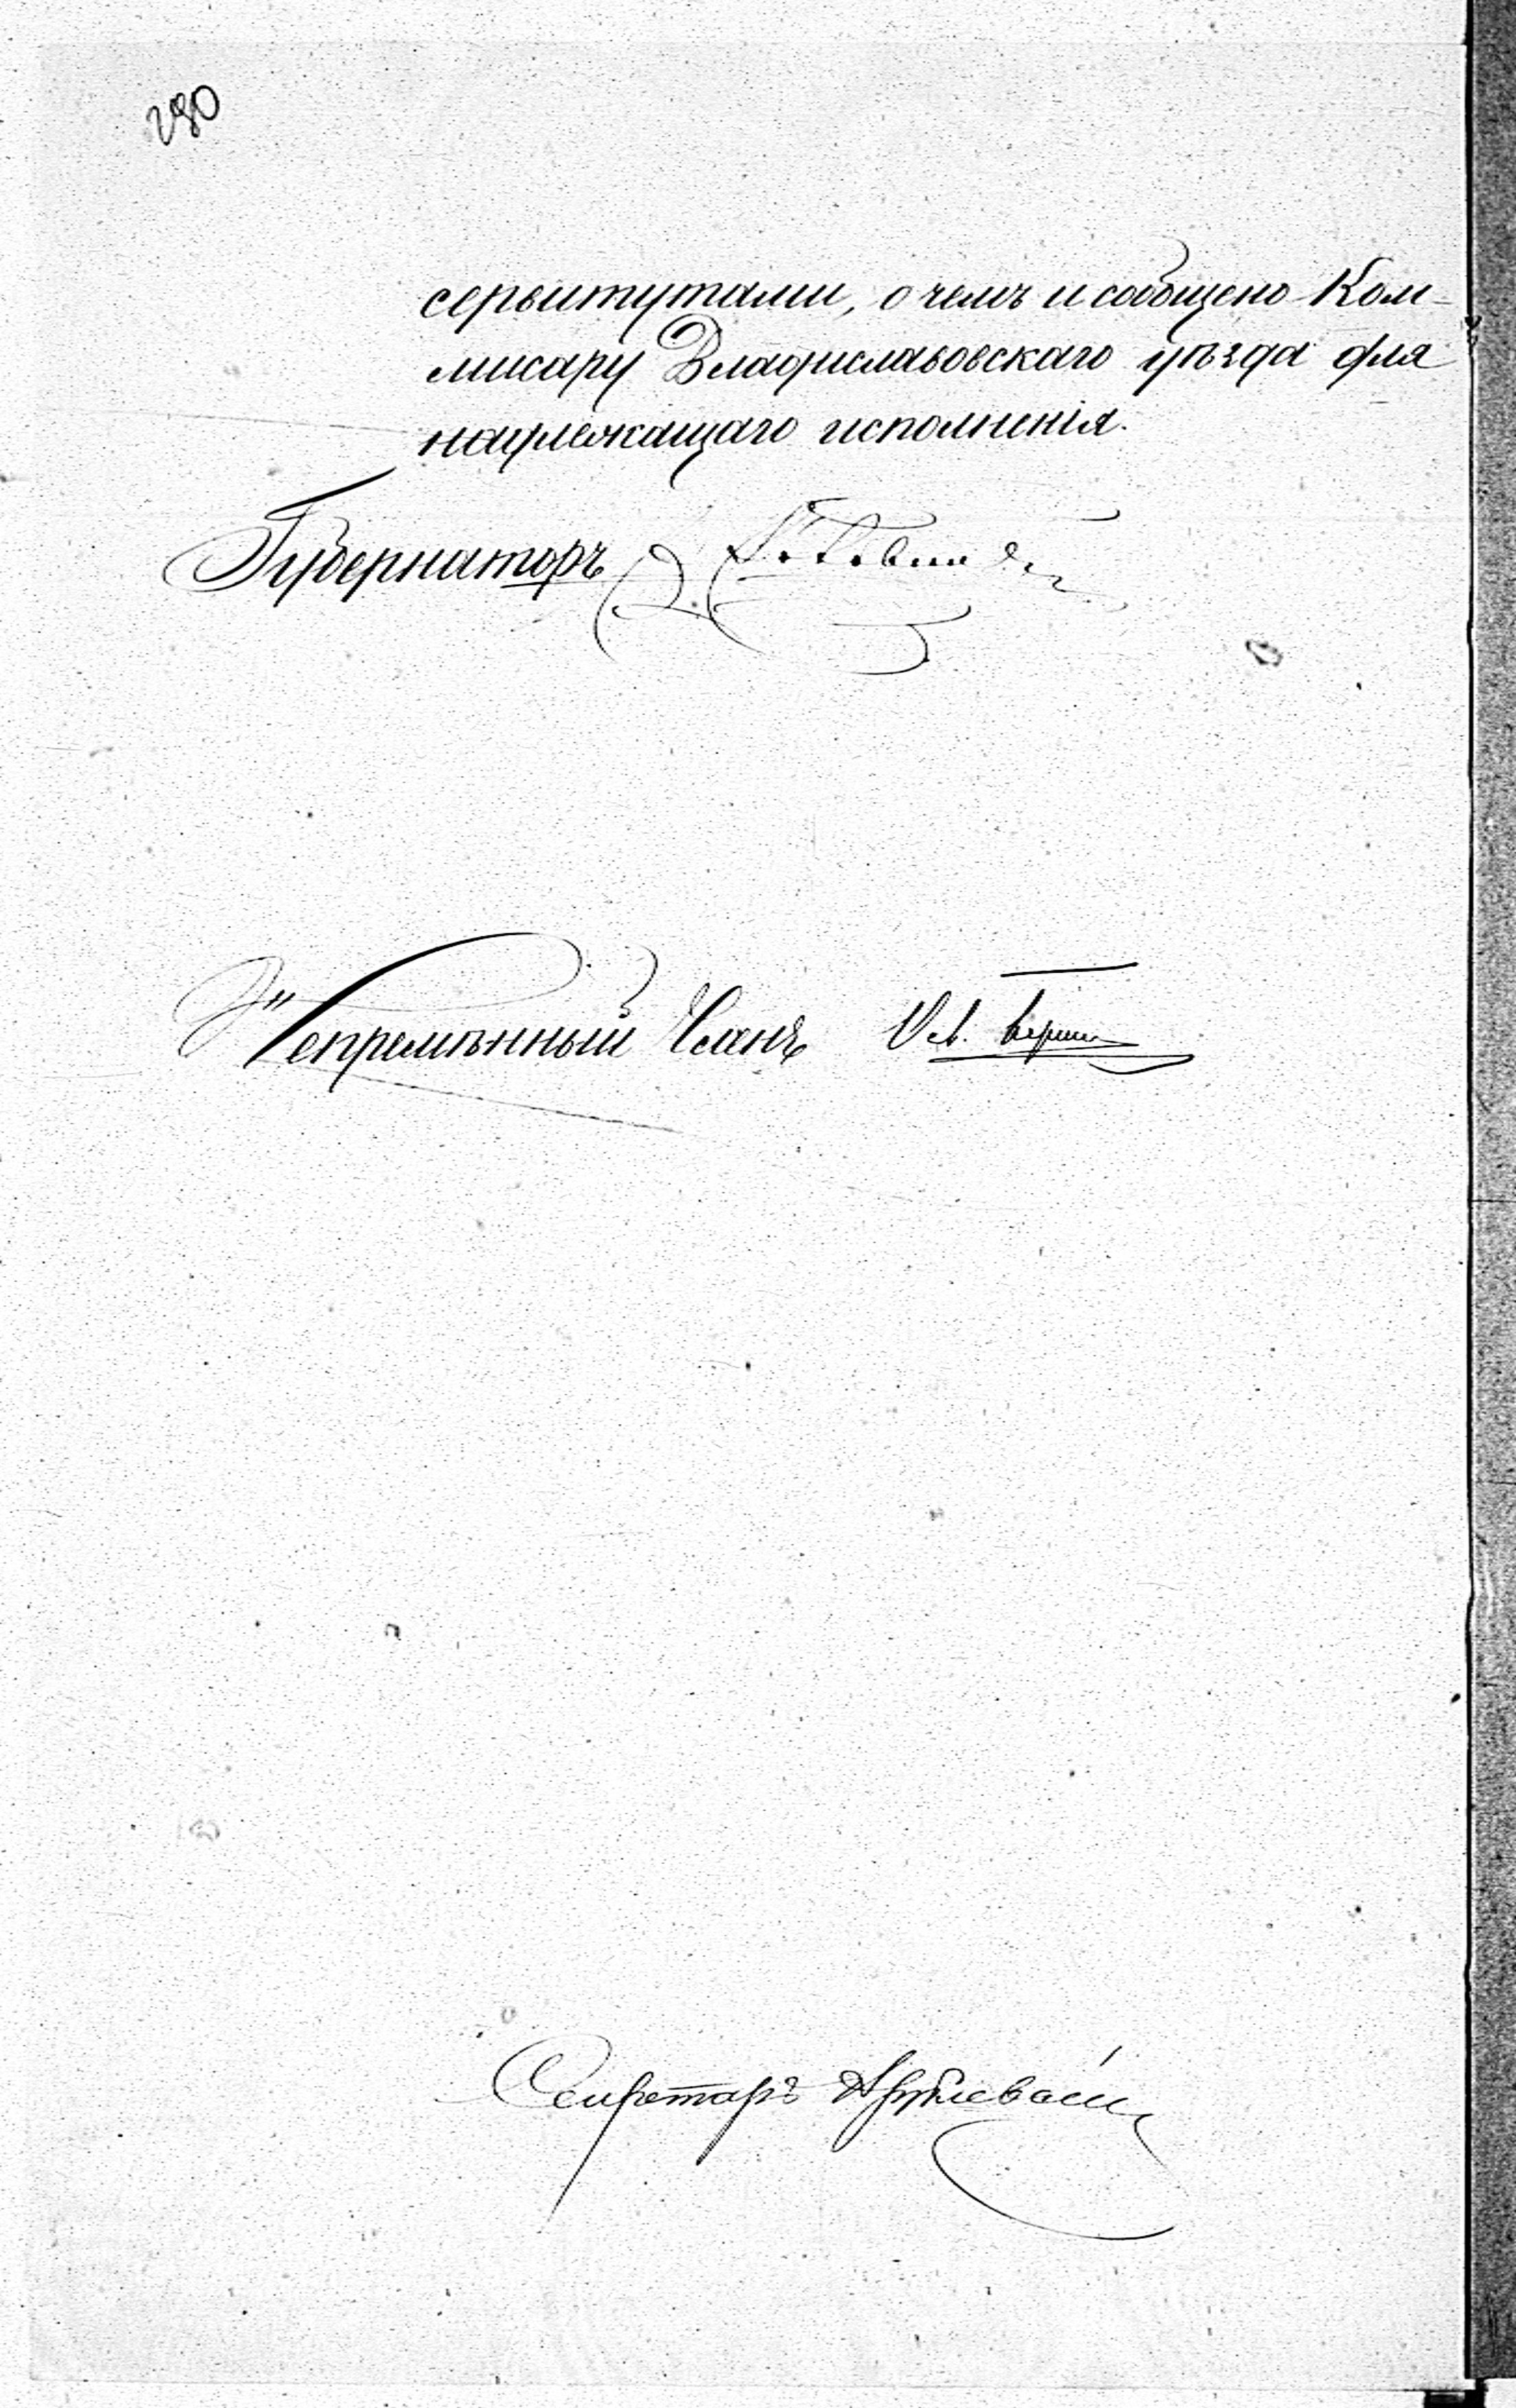 280
сервитутами, о чемъ и сообщено Ком-
мисару Владиславовскаго уѣзда для
надлежащаго исполненія.
Губернаторъ
Непремѣнный Членъ
Секретарь